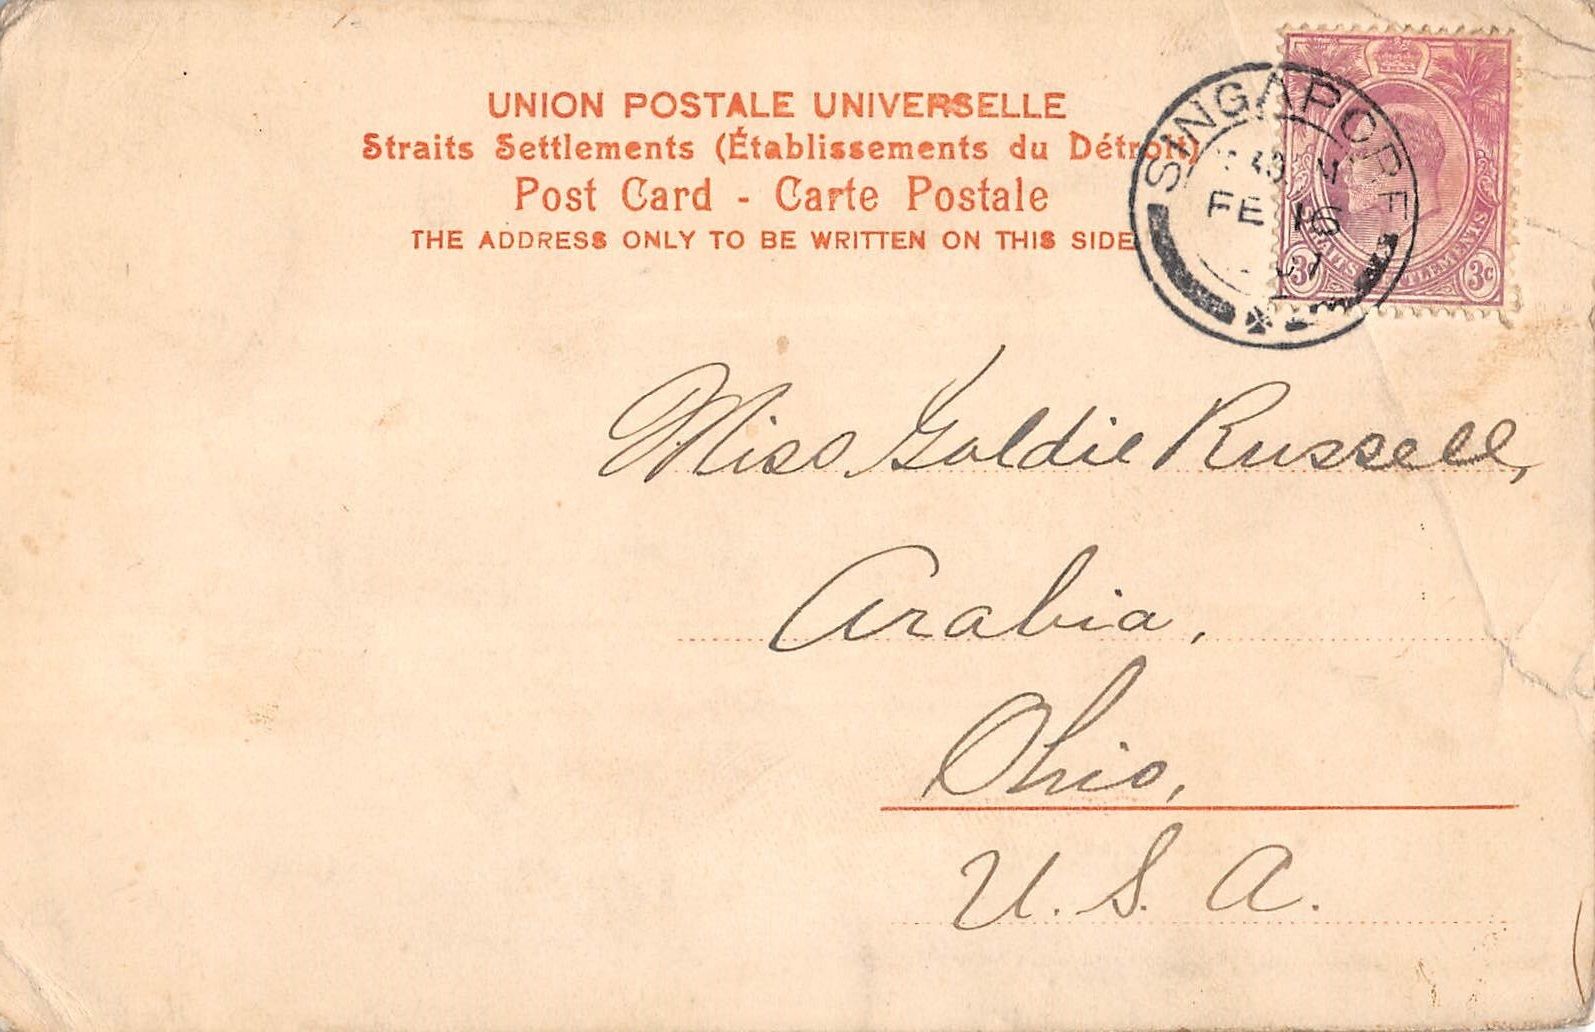 UNION POSTALE UNIVERSELLE
Straits Settlements (Établissements du Détroit)
Post Card - Carte Postale
THE ADDRESS ONLY TO BE WRITTEN ON THIS SIDE
SINGAPORE
FE 16
07
STRAITS SETTLEMENTS
3c 3c
Miss Goldie Russell,
Arabia,
Ohio,
U. S. A.